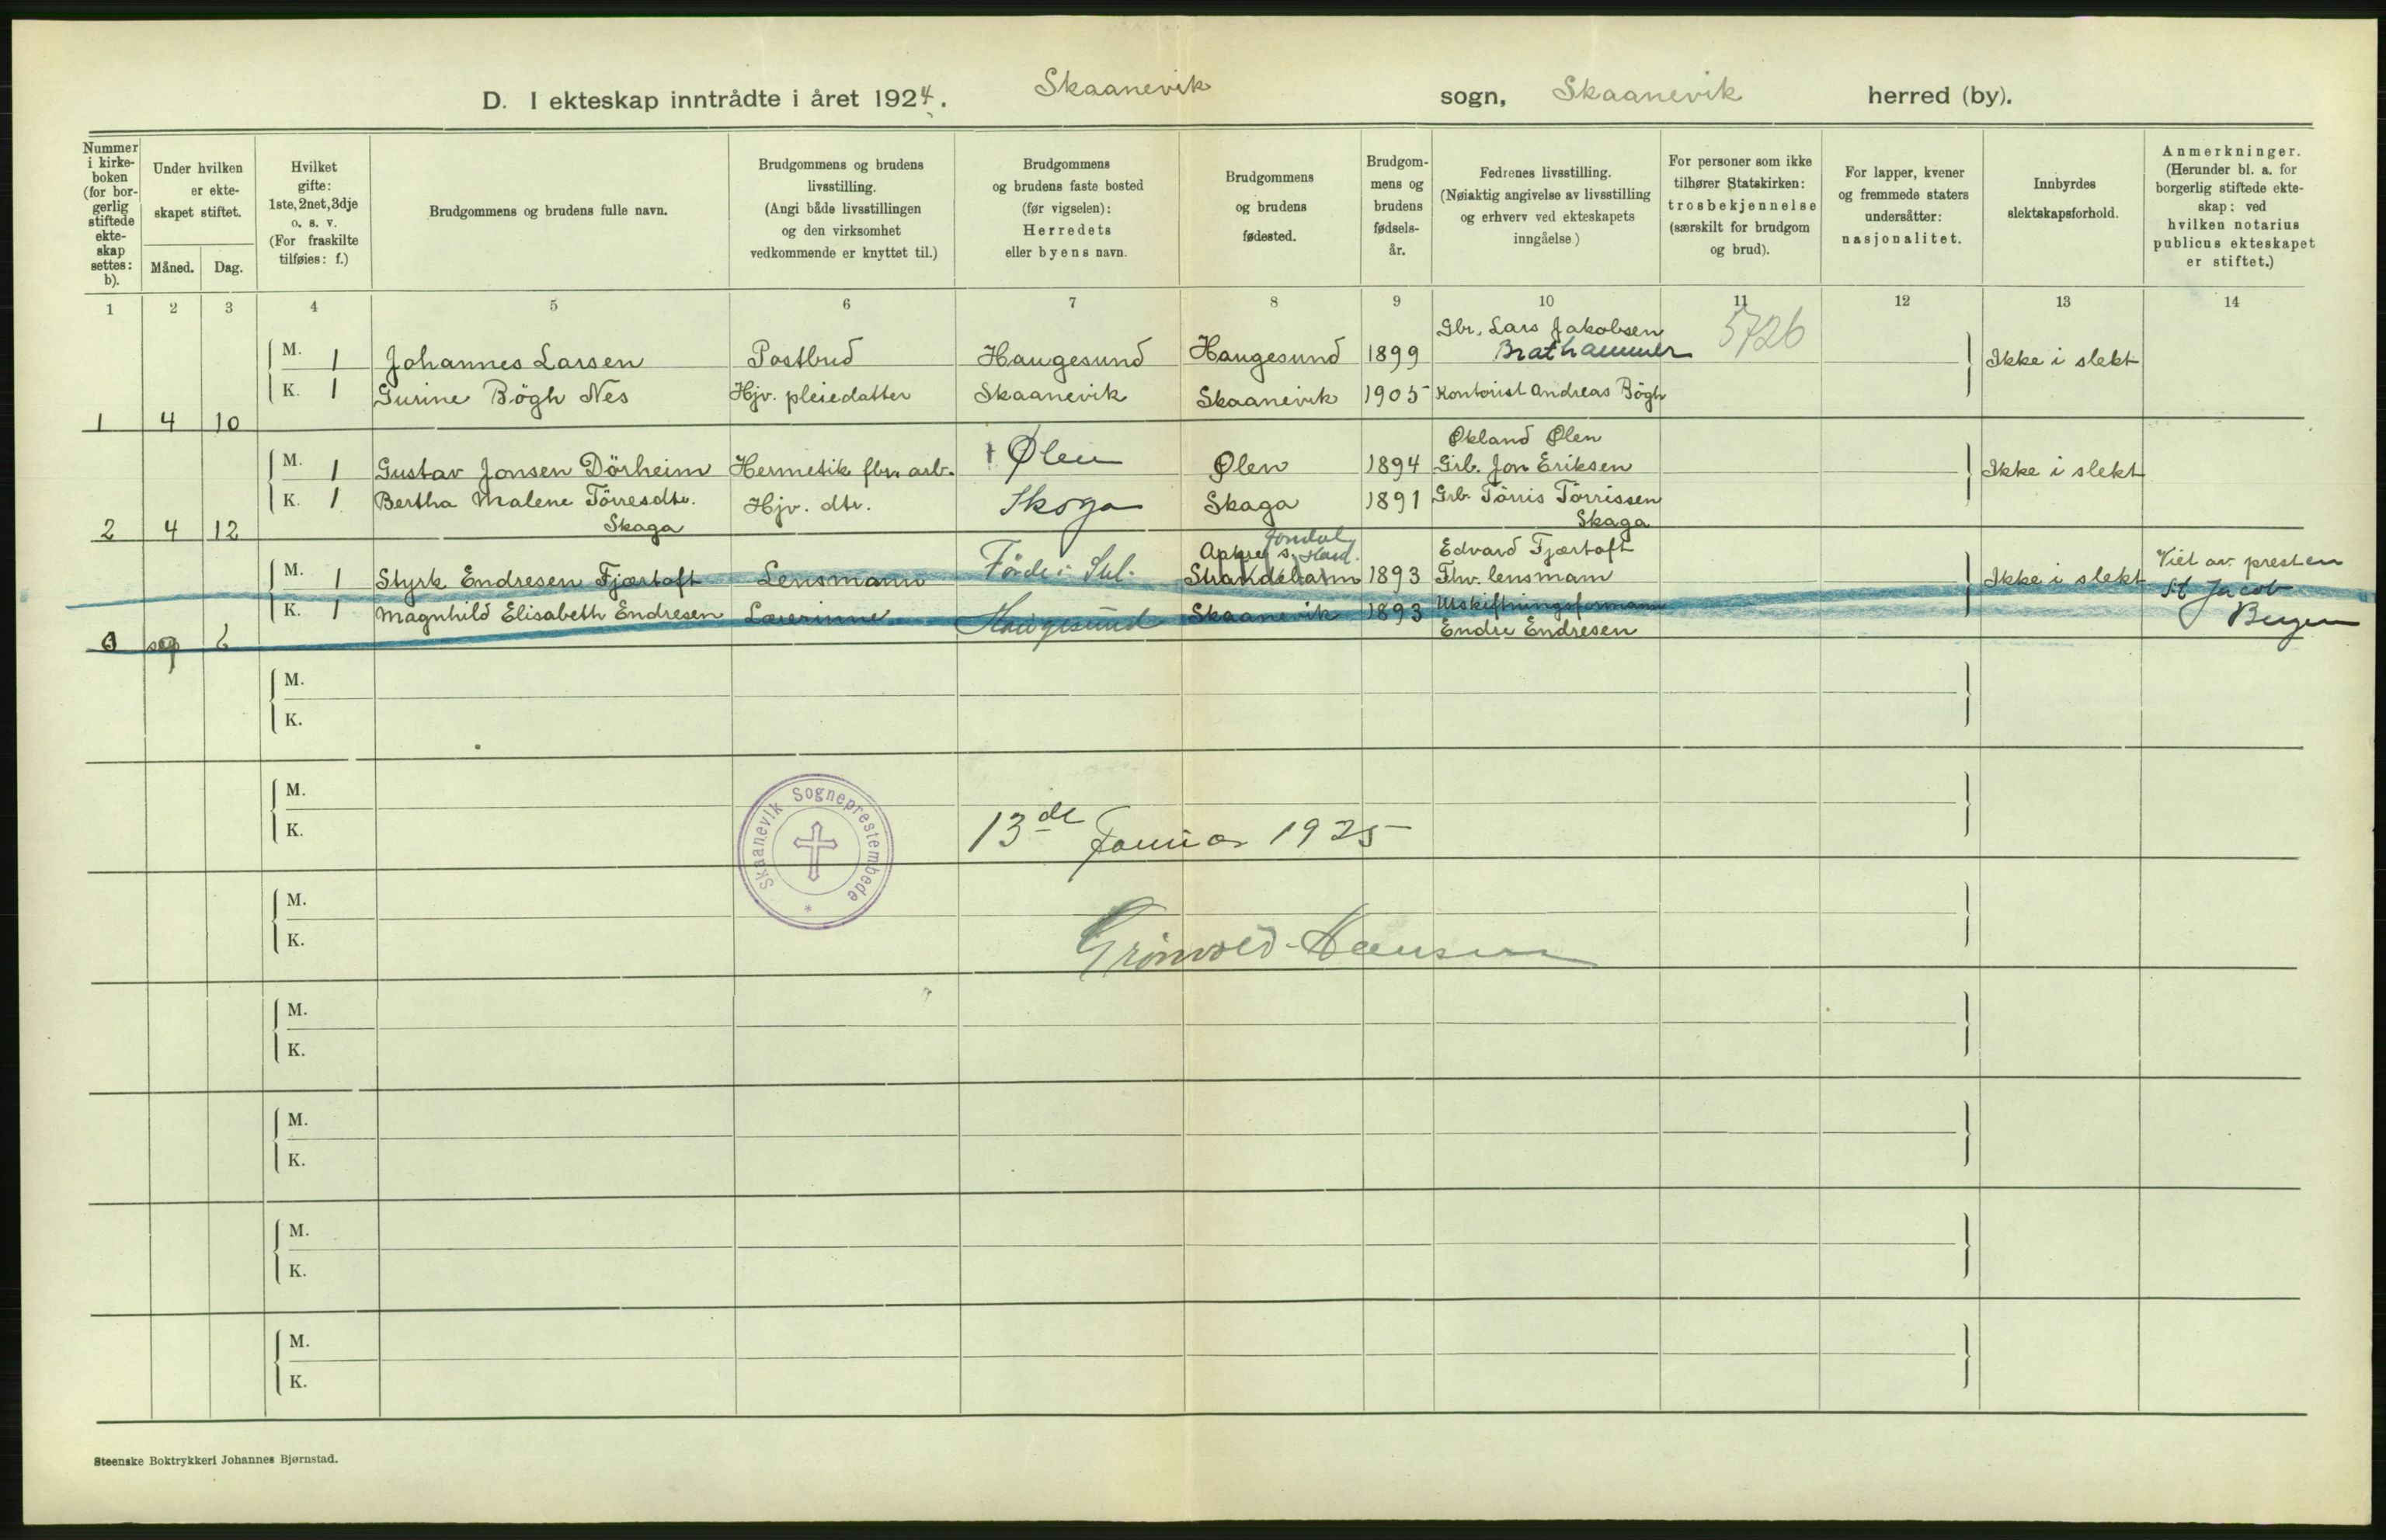 D. I ekteskap inntrådte i året 1924. Skaanevik sogn, Skaanevik herred (by).
Nummer i kirke-boken (for bor-gerlig stiftede ekte-skap settes: b).
Under hvilken er ekte-skapet stiftet.
Måned. Dag.
Hvilket gifte: 1ste, 2net, 3dje o. s. v. (For fraskilte tilføies: f.)
Brudgommens og brudens fulle navn.
Brudgommens og brudens livsstilling. (Angi både livsstillingen og den virksomhet vedkommende er knyttet til.)
Brudgommens og brudens faste bosted (før vigselen): Herredets eller byens navn.
Brudgommens og brudens fødested.
Brudgom-mens og brudens fødsels-år.
Fedrenes livsstilling. (Nøiaktig angivelse av livsstilling og erhverv ved ekteskapets inngåelse)
For personer som ikke tilhører Statskirken: trosbekjennelse (særskilt for brudgom og brud).
For lapper, kvener og fremmede staters undersåtter: nasjonalitet.
Innbyrdes slektskapsforhold.
Anmerkninger. (Herunder bl. a. for borgerlig stiftede ekte-skap: ved hvilken notarius publicus ekteskapet er stiftet.)
1 2 3 4 5 6 7 8 9 10 11 12 13 14
Gbr. Lars Jakobsen 5726
M. 1 Johannes Larsen Postbud Haugesund Haugesund 1899 Brathammer Ikke i slekt
K. 1 Gurine Bögh Nes Hjv. pleiedatter Skaanevik Skaanevik 1905 Kontorist Andreas Bögh
1 4 10
Økland Ølen
M. 1 Gustav Jonsen Dörheim Hermetik fbr. arb. Ølen Ølen 1894 Grb. Jon Eriksen Ikke i slekt
K. 1 Bertha Malene Törresdtr. Hjv. dtr. Skoga Skaga 1891 Grb. Törris Törrissen
2 4 12 Skaga Skaga
Jondal
Edvard Fjærtoft Viet av presten
M. 1 Styrk Endresen Fjærtoft Lensmann Førde i Strandebarm 1893 Fhv. lensmann Ikke i slekt St Jacob
K. 1 Magnhild Elisabeth Endresen Lærerinne Haugesund Skaanevik 1893 Utskiftningsformann Bergen
sep 6 Endre Endresen
M.
K.
M.
K.
Skaanevik Sogneprestembede
13de Januar 1925
M.
K.
Grönvold-Hansen
M.
K.
M.
K.
M.
K.
M.
K.
Steenske Boktrykkeri Johannes Bjørnstad.